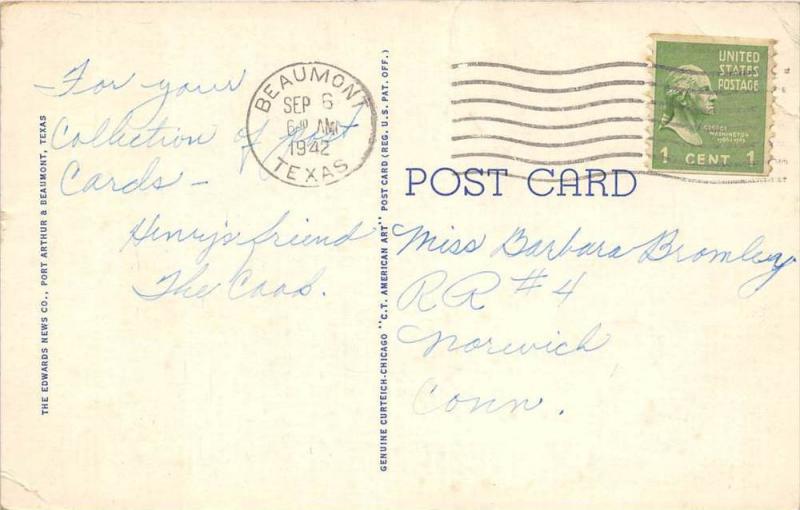 For your
Collection of Post
Cards -
Henry's friend
The
BEAUMONT
SEP 6
AM
1942
TEXAS
UNITED
STATES
POSTAGE
GEORGE
WASHINGTON
1 CENT 1
POST CARD
Miss Barbara Bromley
RR #4
Norwich
Conn.
THE EDWARDS NEWS CO., PORT ARTHUR & BEAUMONT, TEXAS
GENUINE CURTEICH-CHICAGO "C.T. AMERICAN ART" POST CARD (REG. U.S. PAT. OFF.)